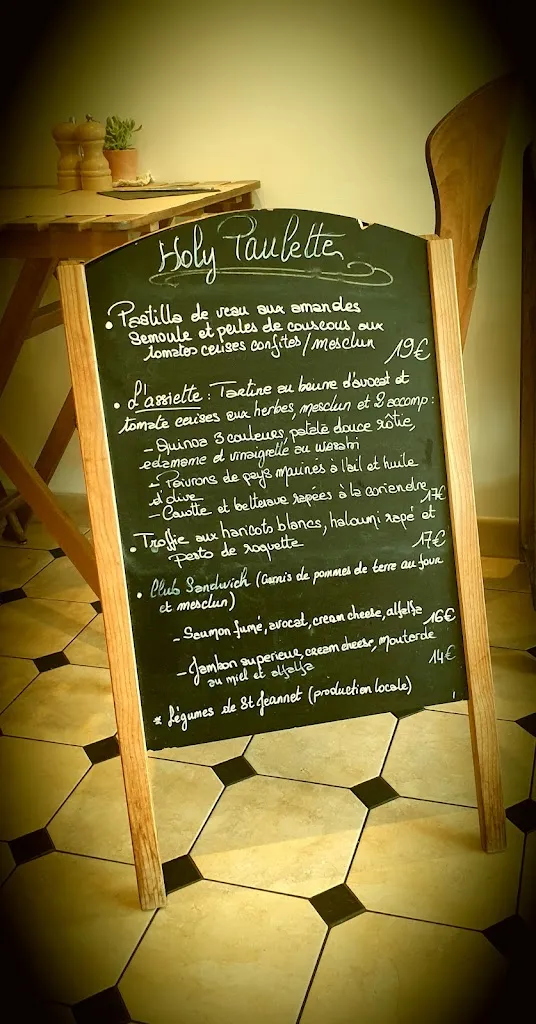 Holy Paulette
• Pastilla de veau aux amandes
Semoule et perles de couscous aux
tomates cerises confites / mesclun 19€
• L'assiette : Tartine au beurre d'avocat et
tomate cerises aux herbes, mesclun et 2 accomp :
- Quinoa 3 couleurs, patate douce rôtie,
edamame et vinaigrette au wasabi
- Poivrons de pays marinés à l'ail et huile
d'olive
- Carotte et betterave rapées à la coriandre 17€
• Troffie aux haricots blancs, haloumi rapé et
pesto de roquette 17€
• Club Sandwich (Garnis de pommes de terre au four
et mesclun)
- Saumon fumé, avocat, cream cheese, alfalfa 16€
- Jambon superieur, cream cheese, moutarde
au miel et alfalfa 14€
* Légumes de St Jeannet (production locale)